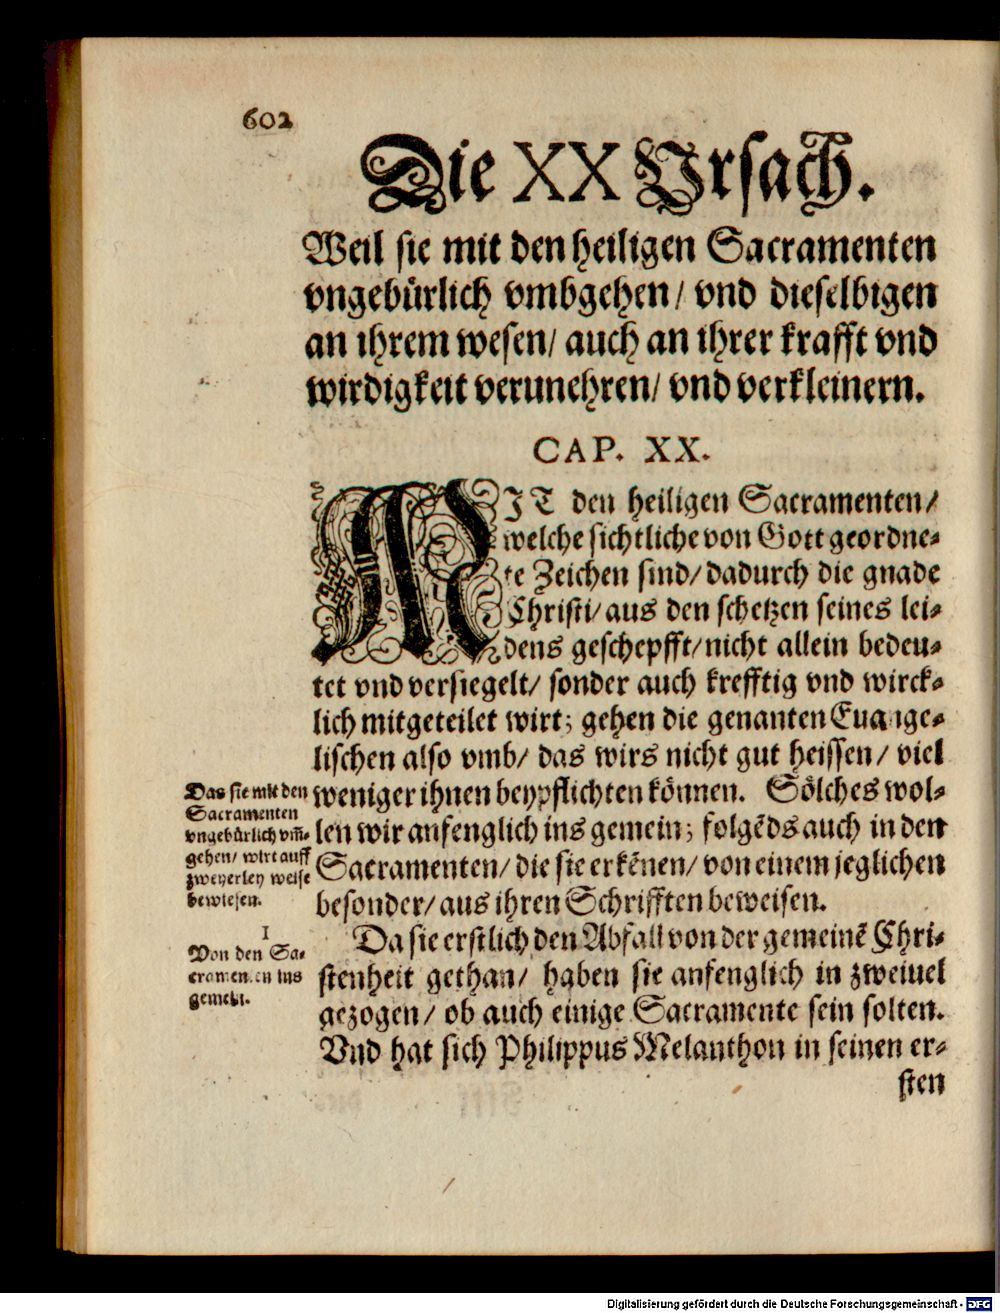 602
Die XX Vrsach.
Weil sie mit den heiligen Sacramenten
vngebürlich vmbgehen/ vnd dieselbigen
an ihrem wesen/ auch an ihrer krafft vnd
wirdigkeit verunehren/ vnd verkleinern.
CAP. XX.
MIT den heiligen Sacramenten/
welche sichtliche von Gott geordne-
te Zeichen sind/ dadurch die gnade
Christi/ aus den schetzen seines lei-
dens geschepfft/ nicht allein bedeu-
tet vnd versiegelt/ sonder auch krefftig vnd wirck-
lich mitgeteilet wirt; gehen die genanten Euange-
lischen also vmb/ das wirs nicht gut heissen/ viel
weniger ihnen beypflichten können. Sölches wol-
len wir anfenglich ins gemein; folgēds auch in den
Sacramenten/ die sie erkēnen/ von einem jeglichen
besonder/ aus ihren Schrifften beweisen.
Da sie erstlich den Abfall von der gemeinē Chri-
stenheit gethan/ haben sie anfenglich in zweiuel
gezogen/ ob auch einige Sacramente sein solten.
Vnd hat sich Philippus Melanthon in seinen er-
sten
Das sie mit den
Sacramenten
vngebürlich vm̄-
gehen/ wirt auff
zweyerley weise
bewiesen.
1
Von den Sa-
cramenten ins
gemein.
Digitalisierung gefördert durch die Deutsche Forschungsgemeinschaft - DFG